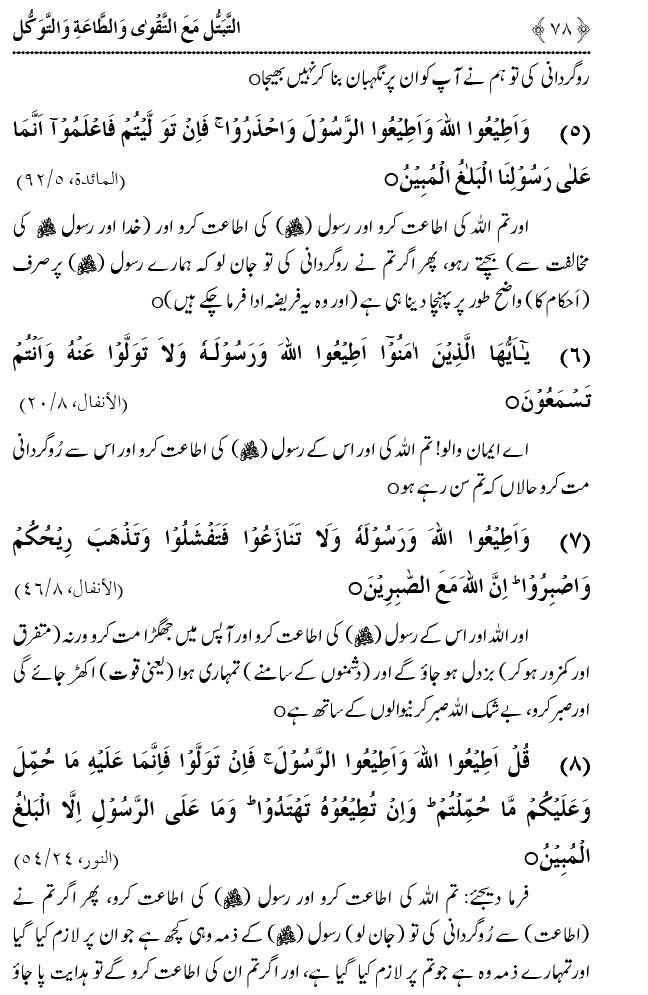 ﴿۷۸﴾ التَّبَتُّل مَعَ التَّقْوٰى وَالطَّاعَةِ وَالتَّوَكُّل
روگردانی کی تو ہم نے آپ کو ان پر نگہبان بنا کر نہیں بھیجا○
(۵) وَاَطِيْعُوا اللهَ وَاَطِيْعُوا الرَّسُوْلَ وَاحْذَرُوْا ۚ فَاِنْ تَوَ لَّيْتُمْ فَاعْلَمُوْٓا اَنَّمَا
عَلٰى رَسُوْلِنَا الْبَلٰغُ الْمُبِيْنُ○ (المائدة، ٩٢/٥)
اور تم اللہ کی اطاعت کرو اور رسول (ﷺ) کی اطاعت کرو اور (خدا اور رسول ﷺ کی
مخالفت سے) بچتے رہو، پھر اگر تم نے روگردانی کی تو جان لو کہ ہمارے رسول (ﷺ) پر صرف
(اَحکام کا) واضح طور پر پہنچا دینا ہی ہے (اور وہ یہ فریضہ ادا فرما چکے ہیں)○
(٦) يٰٓـاَيُّهَا الَّذِيْنَ اٰمَنُوْٓا اَطِيْعُوا اللهَ وَرَسُوْلَـهٗ وَلاَ تَوَلَّوْا عَنْهُ وَاَنْتُمْ
تَسْمَعُوْنَ○ (الأنفال، ٢٠/٨)
اے ایمان والو! تم اللہ کی اور اس کے رسول (ﷺ) کی اطاعت کرو اور اس سے رُوگردانی
مت کرو حالاں کہ تم سن رہے ہو○
(۷) وَاَطِيْعُوا اللهَ وَرَسُوْلَهٗ وَلَا تَنَازَعُوْا فَتَفْشَلُوْا وَتَذْهَبَ رِيْحُكُمْ
وَاصْبِرُوْا ؕ اِنَّ اللهَ مَعَ الصّٰبِرِيْنَ○ (الأنفال، ٤٦/٨)
اور اللہ اور اس کے رسول (ﷺ) کی اطاعت کرو اور آپس میں جھگڑا مت کرو ورنہ (متفرق
اور کمزور ہو کر) بزدل ہو جاؤ گے اور (دشمنوں کے سامنے) تمہاری ہوا (یعنی قوت) اکھڑ جائے گی
اور صبر کرو، بے شک اللہ صبر کرنیوالوں کے ساتھ ہے○
(۸) قُلْ اَطِيْعُوا اللهَ وَاَطِيْعُوا الرَّسُوْلَ ۚ فَاِنْ تَوَلَّوْا فَاِنَّمَا عَلَيْهِ مَا حُمِّلَ
وَعَلَيْكُمْ مَّا حُمِّلْتُمْ ؕ وَاِنْ تُطِيْعُوْهُ تَهْتَدُوْا ؕ وَمَا عَلَى الرَّسُوْلِ اِلَّا الْبَلٰغُ
الْمُبِيْنُ○ (النور، ٥٤/٢٤)
فرما دیجئے: تم اللہ کی اطاعت کرو اور رسول (ﷺ) کی اطاعت کرو، پھر اگر تم نے
(اطاعت) سے رُوگردانی کی تو (جان لو) رسول (ﷺ) کے ذمہ وہی کچھ ہے جو ان پر لازم کیا گیا
اور تمہارے ذمہ وہ ہے جو تم پر لازم کیا گیا ہے، اور اگر تم ان کی اطاعت کرو گے تو ہدایت پا جاؤ